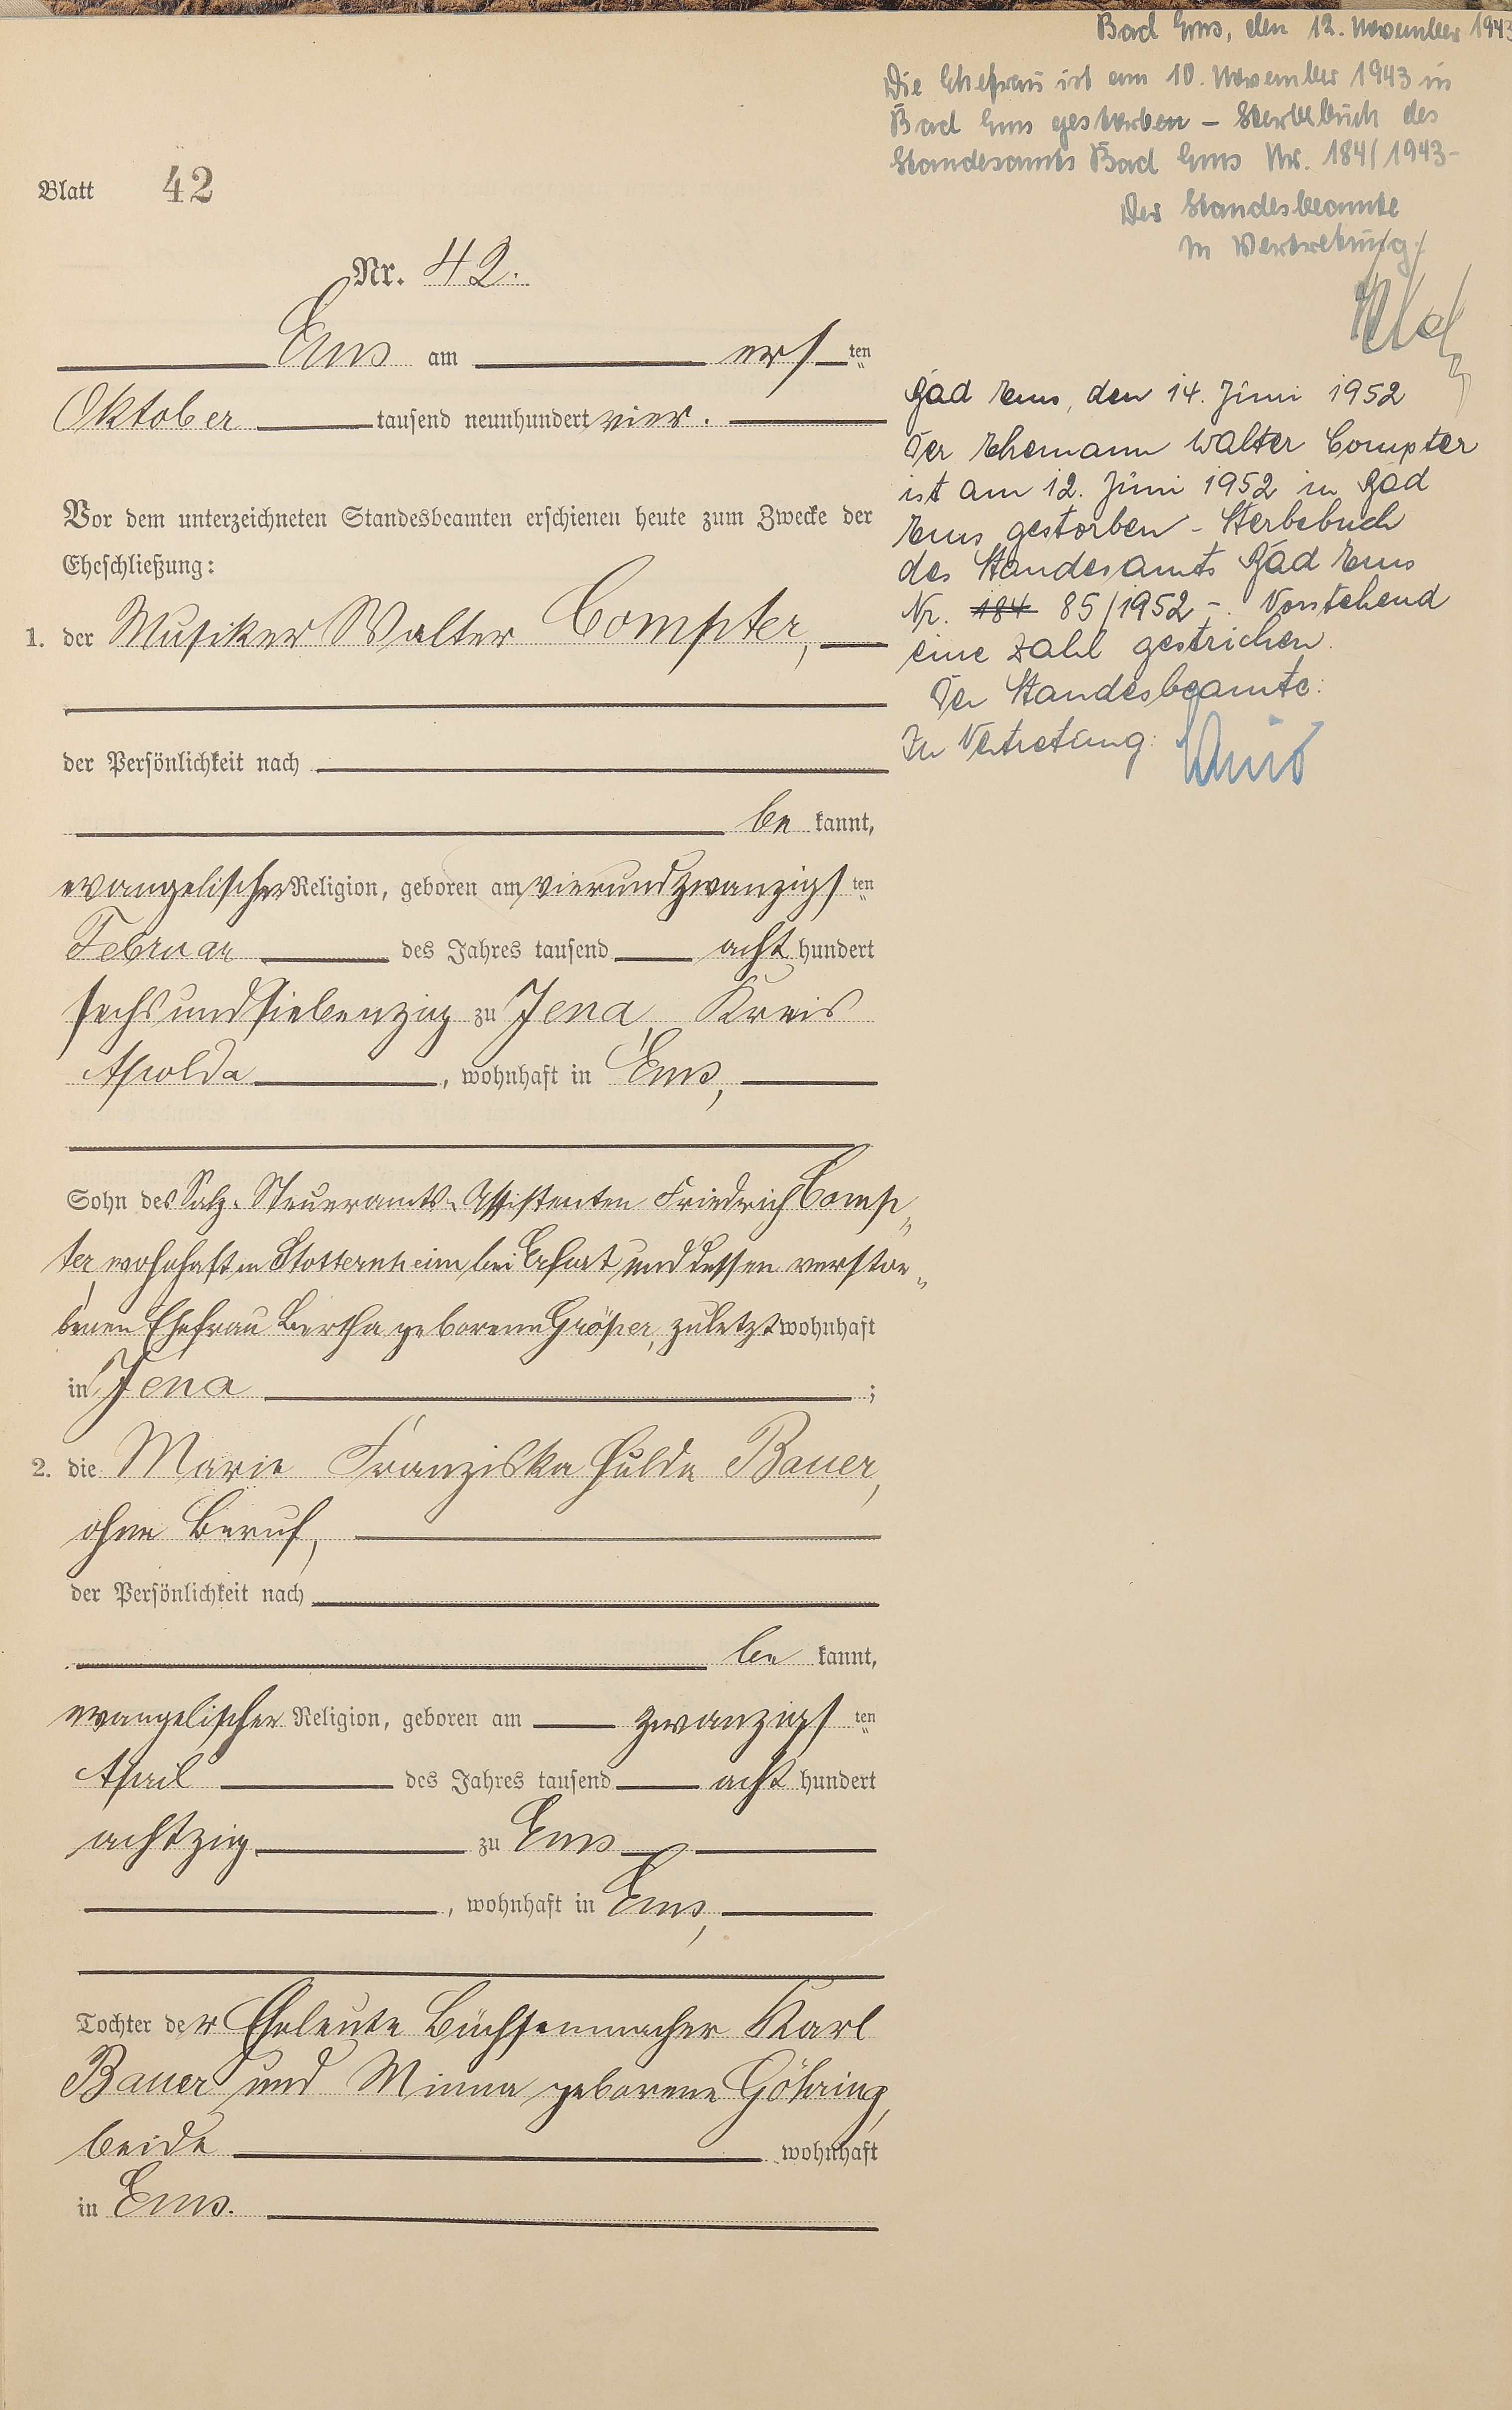 Blatt 42
Nr. 42.
Ems am erſten
Oktober tauſend neunhundert vier.
Vor dem unterzeichneten Standesbeamten erſchienen heute zum Zwecke der
Eheſchließung:
1. der Muſiker Walter Compter,
der Perſönlichkeit nach
be kannt,
evangeliſcher Religion, geboren am vierundzwanzigſten
Februar des Jahres tauſend acht hundert
ſechsundſiebenzig zu Jena, Kreis
Apolda, wohnhaft in Ems,
Sohn des Salz-Steueramts-Aſſiſtenten Friedrich Comp-
ter, wohnhaft in Stotternheim bei Erfurt und deſſen verſtor-
benen Ehefrau Bertha geborene Größer, zuletzt wohnhaft
in Jena;
2. die Marie Franziska Hulda Bauer,
ohne Beruf,
der Perſönlichkeit nach
be kannt,
evangeliſcher Religion, geboren am zwanzigſten
April des Jahres tauſend acht hundert
achtzig zu Ems
, wohnhaft in Ems,
Tochter der Eheleute Büchſenmacher Karl
Bauer und Minna geborene Göhring,
beide wohnhaft
in Ems.
Bad Ems, den 12. November 1943
Die Ehefrau ist am 10. November 1943 in
Bad Ems gestorben – Sterbebuch des
Standesamts Bad Ems Nr. 184/1943-
Der Standesbeamte
In Vertretung:
Bad Ems, den 14. Juni 1952
Der Ehemann Walter Compter
ist am 12. Juni 1952 in Bad
Ems gestorben - Sterbebuch
des Standesamts Bad Ems
Nr. 184 85/1952 -. Vorstehend
eine Zahl gestrichen.
Der Standesbeamte:
In Vertretung: